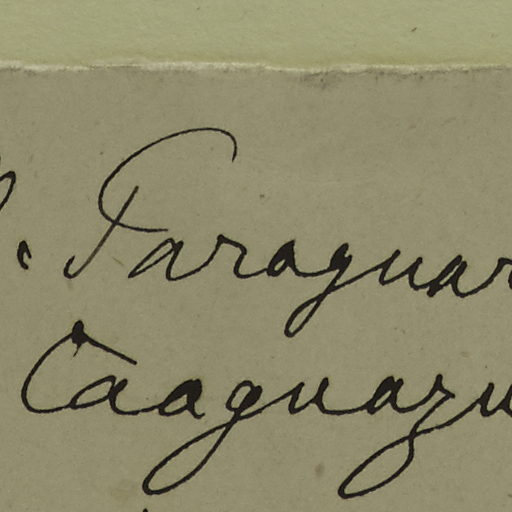 Paraguar
Caaguazu